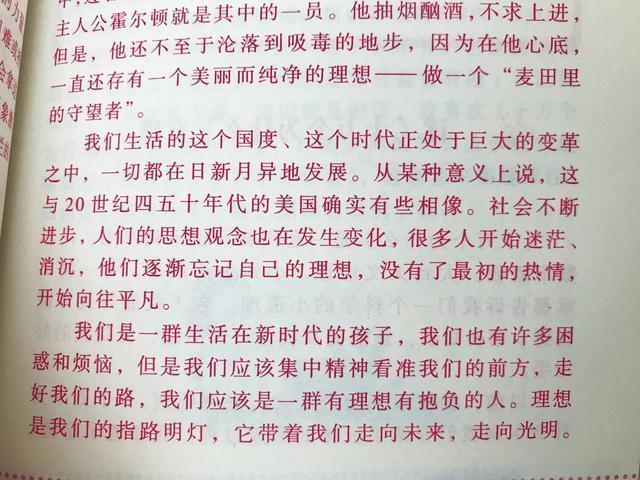 主人公霍尔顿就是其中的一员。他抽烟酗酒，不求上进，
但是，他还不至于沦落到吸毒的地步，因为在他心底，
一直还存有一个美丽而纯净的理想——做一个“麦田里
的守望者”。
我们生活的这个国度、这个时代正处于巨大的变革
之中，一切都在日新月异地发展。从某种意义上说，这
与20世纪四五十年代的美国确实有些相像。社会不断
进步，人们的思想观念也在发生变化，很多人开始迷茫、
消沉，他们逐渐忘记自己的理想，没有了最初的热情，
开始向往平凡。
我们是一群生活在新时代的孩子，我们也有许多困
惑和烦恼，但是我们应该集中精神看准我们的前方，走
好我们的路，我们应该是一群有理想有抱负的人。理想
是我们的指路明灯，它带着我们走向未来，走向光明。